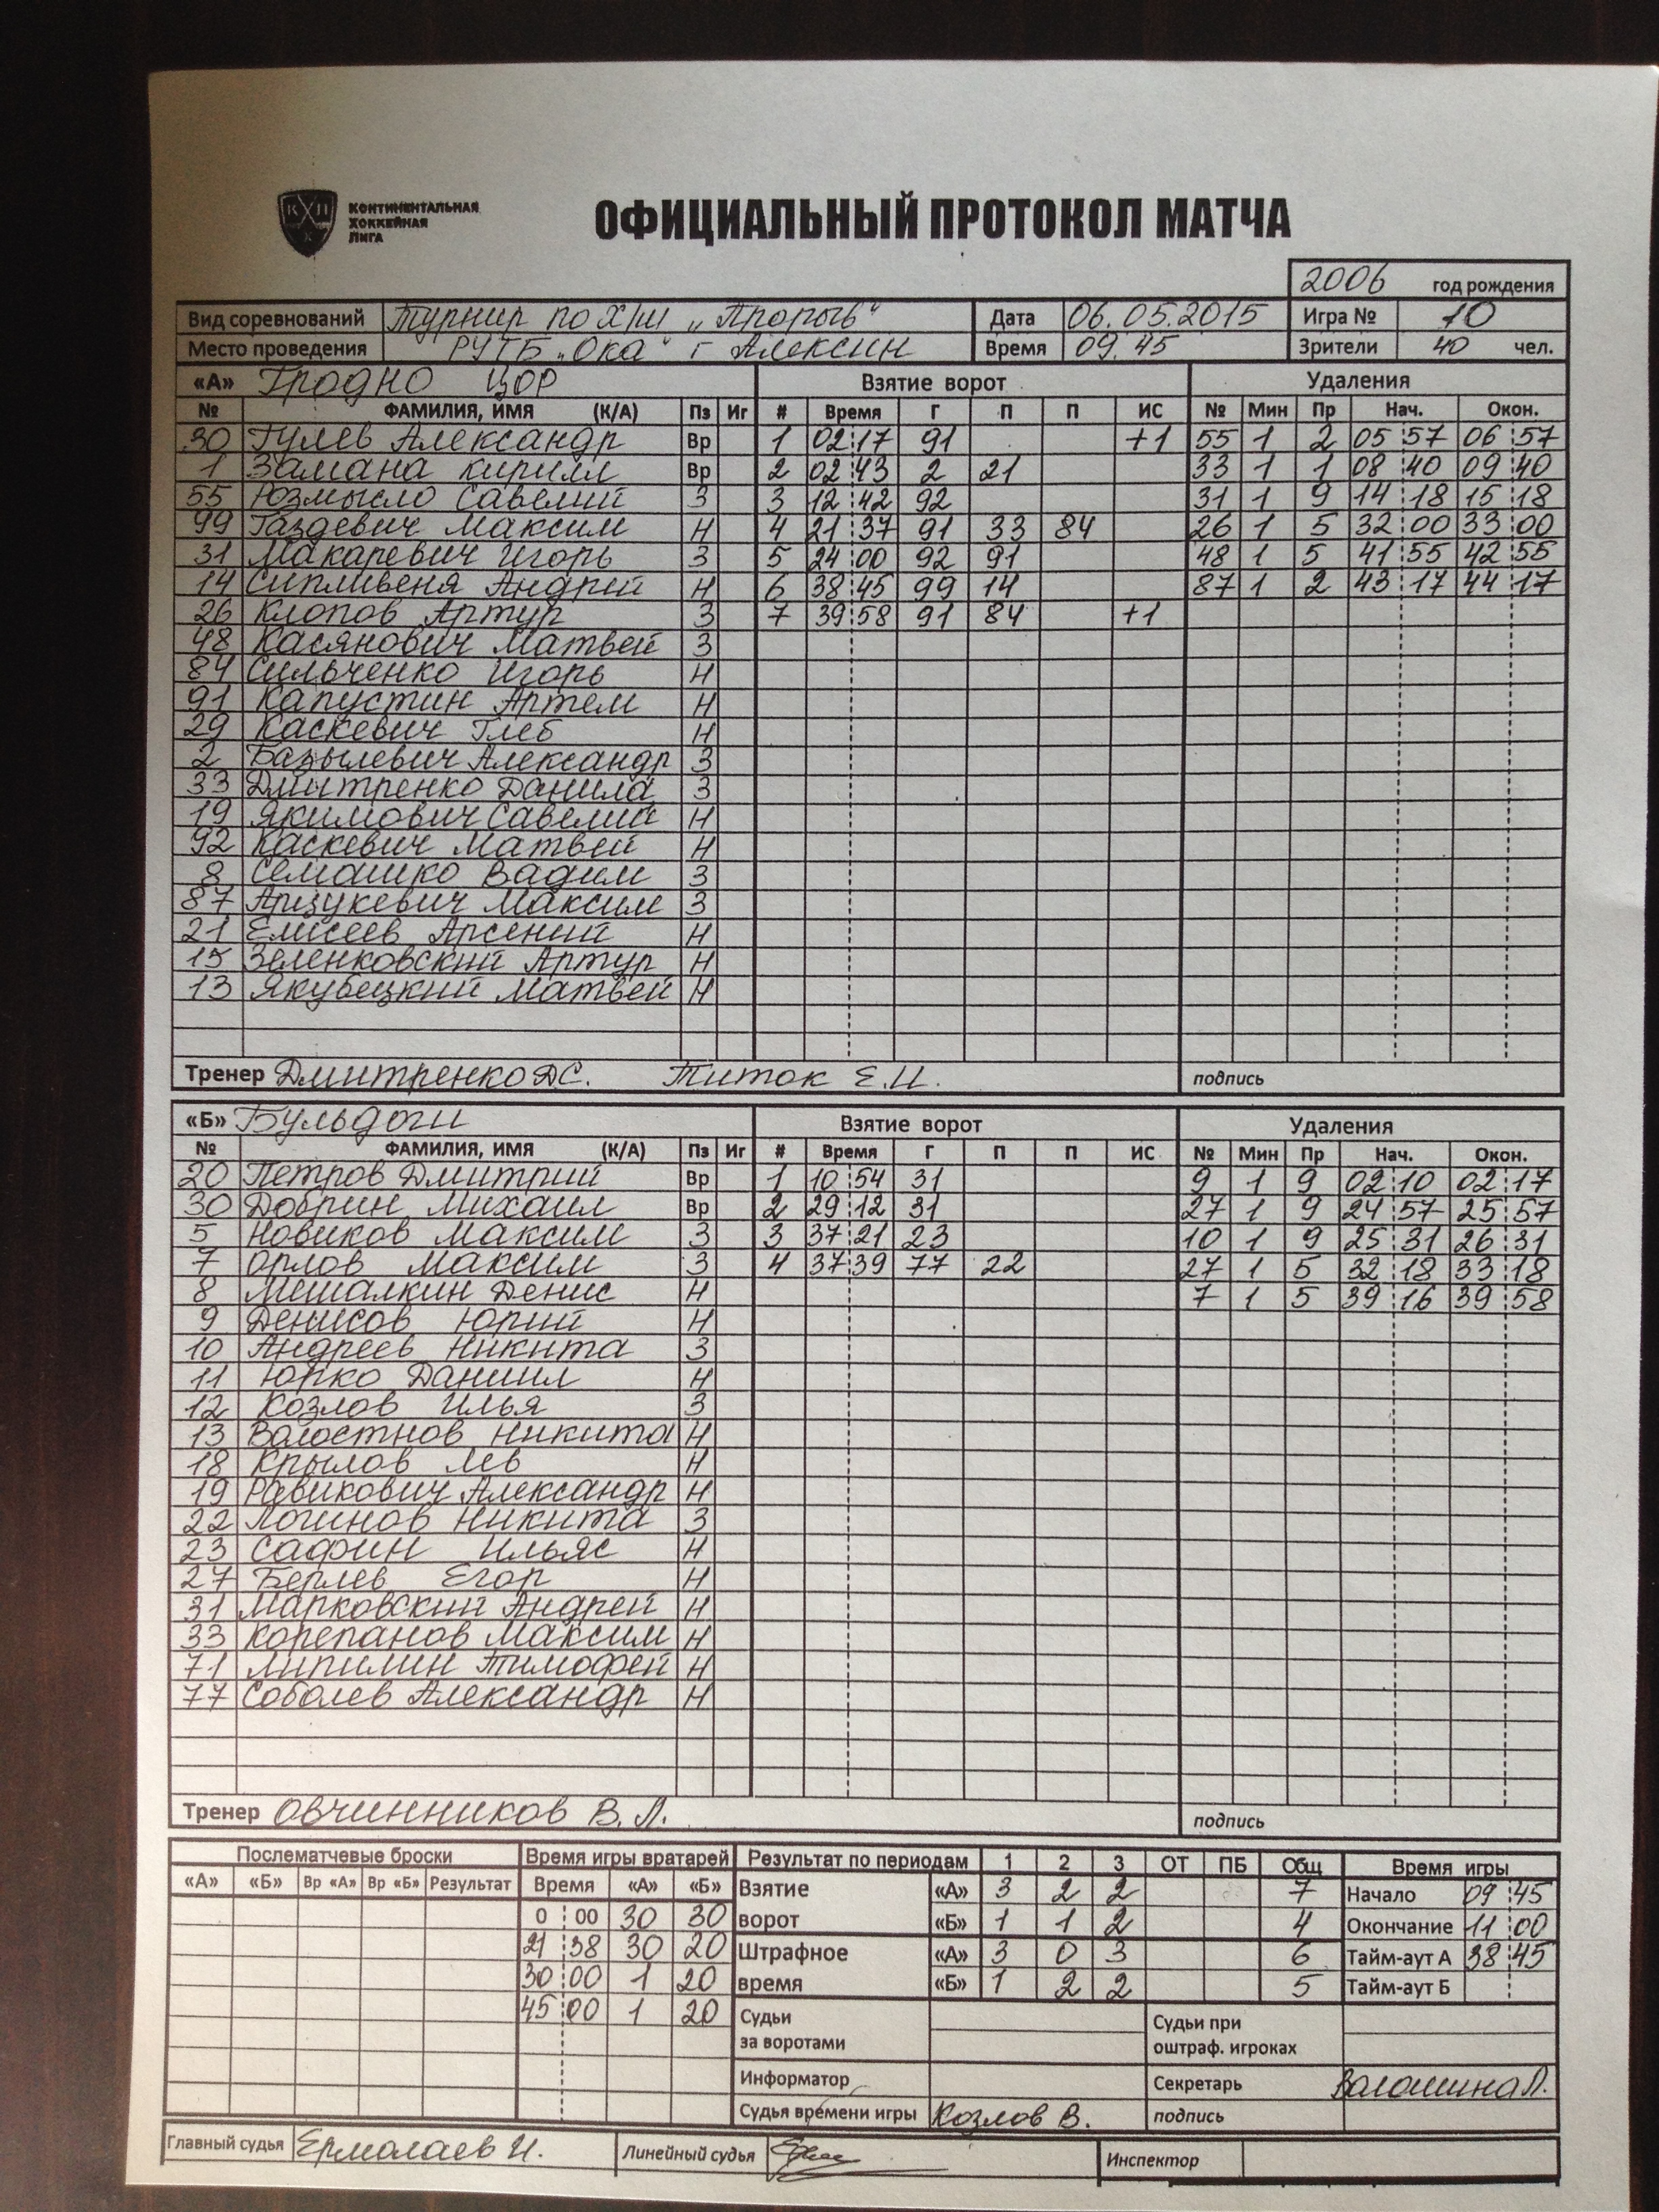 КОНТИНЕНТАЛЬНАЯ
ХОККЕЙНАЯ
ЛИГА
ОФИЦИАЛЬНЫЙ ПРОТОКОЛ МАТЧА
2006 год рождения
Вид соревнований Турнир по х/ш „Прорыв“ Дата 06.05.2015 Игра № 10
Место проведения РУТБ „Ока“ г Алексин Время 09.45 Зрители 40 чел.
«А» Гродно ЦОР Взятие ворот Удаления
№ ФАМИЛИЯ, ИМЯ (К/А) Пз Иг # Время Г П П ИС № Мин Пр Нач. Окон.
30 Гулев Александр Вр 1 02 17 91 +1 55 1 2 05 57 06 57
1 Замана Кирилл Вр 2 02 43 2 21 33 1 1 08 40 09 40
55 Розмысло Савелий З 3 12 42 92 31 1 9 14 18 15 18
99 Газдевич Максим Н 4 21 37 91 33 84 26 1 5 32 00 33 00
31 Макаревич Игорь З 5 24 00 92 91 48 1 5 41 55 42 55
14 Сипливеня Андрей Н 6 38 45 99 14 87 1 2 43 17 44 17
26 Клопов Артур З 7 39 58 91 84 +1
48 Касянович Матвей З
84 Сильченко Игорь Н
91 Капустин Артем Н
29 Каскевич Глеб Н
2 Базылевич Александр З
33 Дмитренко Данила З
19 Якимович Савелий Н
92 Каскевич Матвей Н
8 Семашко Вадим З
87 Арцукевич Максим З
21 Елисеев Арсений Н
15 Зеленковский Артур Н
13 Якубецкий Матвей Н
Тренер Дмитренко Д.С. Титок Е.И. подпись
«Б» Бульдоги Взятие ворот Удаления
№ ФАМИЛИЯ, ИМЯ (К/А) Пз Иг # Время Г П П ИС № Мин Пр Нач. Окон.
20 Петров Дмитрий Вр 1 10 54 31 9 1 9 02 10 02 17
30 Добрин Михаил Вр 2 29 12 31 27 1 9 24 57 25 57
5 Новиков Максим З 3 37 21 23 10 1 9 25 31 26 31
7 Орлов Максим З 4 37 39 77 22 27 1 5 32 18 33 18
8 Мешалкин Денис Н 7 1 5 39 16 39 58
9 Денисов Юрий Н
10 Андреев Никита З
11 Юрко Даниил Н
12 Козлов Илья З
13 Волостнов Никита Н
18 Крылов Лев Н
19 Равикович Александр Н
22 Логинов Никита З
23 Сафин Ильяс Н
27 Берлев Егор Н
31 Марковский Андрей Н
33 Корепанов Максим Н
71 Липилин Тимофей Н
77 Соболев Александр Н
Тренер Овчинников В.Л. подпись
Послематчевые броски Время игры вратарей Результат по периодам 1 2 3 ОТ ПБ Общ Время игры
«А» «Б» Вр «А» Вр «Б» Результат Время «А» «Б» Взятие «А» 3 2 2 7 Начало 09 45
0 00 30 30 ворот «Б» 1 1 2 4 Окончание 11 00
21 38 30 20 Штрафное «А» 3 0 3 6 Тайм-аут А 38 45
30 00 1 20 время «Б» 1 2 2 5 Тайм-аут Б
45 00 1 20 Судьи за воротами Судьи при оштраф. игроках
Информатор Секретарь Волошина Л.
Судья времени игры Козлов В. подпись
Главный судья Ермолаев И. Линейный судья Инспектор